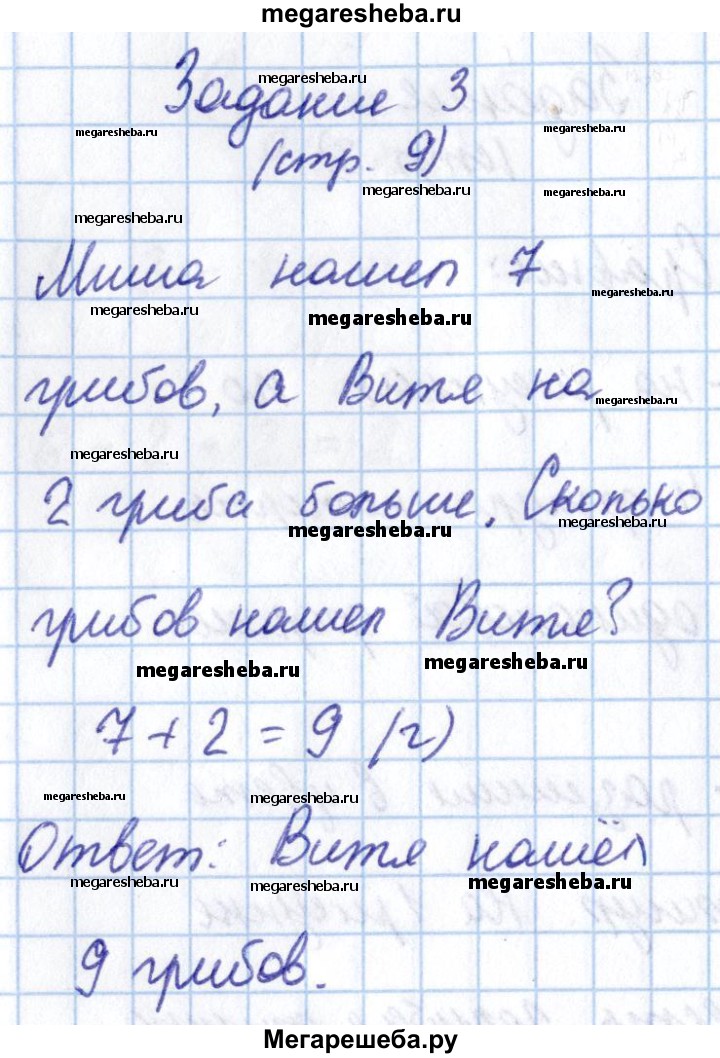 megaresheba.ru
Задание 3
megaresheba.ru
megaresheba.ru
megaresheba.ru
(стр. 9)
megaresheba.ru
megaresheba.ru
megaresheba.ru
Миша нашел 7
megaresheba.ru
megaresheba.ru
megaresheba.ru
грибов, а Витя на
megaresheba.ru
megaresheba.ru
2 гриба больше. Сколько
megaresheba.ru
megaresheba.ru
грибов нашел Витя?
megaresheba.ru
megaresheba.ru
7 + 2 = 9 (г)
megaresheba.ru
megaresheba.ru
Ответ: Витя нашёл
megaresheba.ru
megaresheba.ru
megaresheba.ru
9 грибов.
Мегарешеба.ру